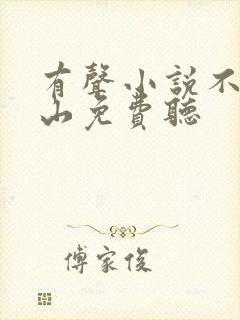 有聲小說不
山免費聽
傅家俊